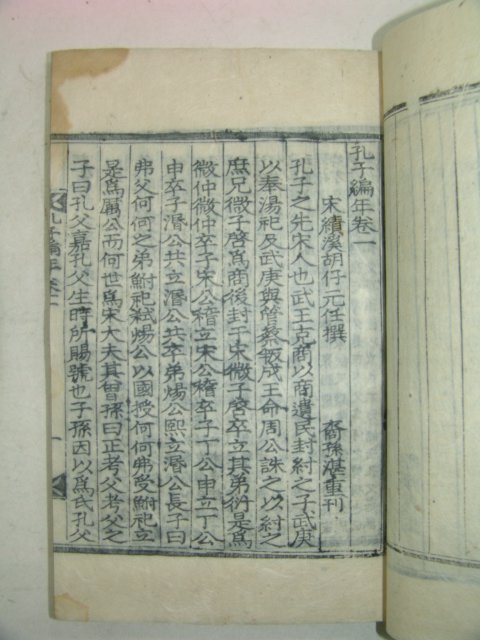 孔子編年卷一
宋績溪胡仔元任撰　裔孫湛重刊
孔子之先宋人也武王克商以商遺民封紂之子武庚
以奉湯祀及武庚與管蔡叛成王命周公誅之以紂之
庶兄微子啓爲商後封于宋微子啓卒立其弟衍是爲
微仲微仲卒子宋公稽立宋公稽卒子丁公申立丁公
申卒子湣公共立湣公共卒弟煬公熙立湣公長子曰
弗父何何之弟鮒祀弑煬公以國授何何弗受鮒祀立
是爲厲公而何世爲宋大夫其曾孫曰正考父考父之
子曰孔父嘉孔父生時所賜號也子孫因以爲氏孔父
孔子編年卷一
一